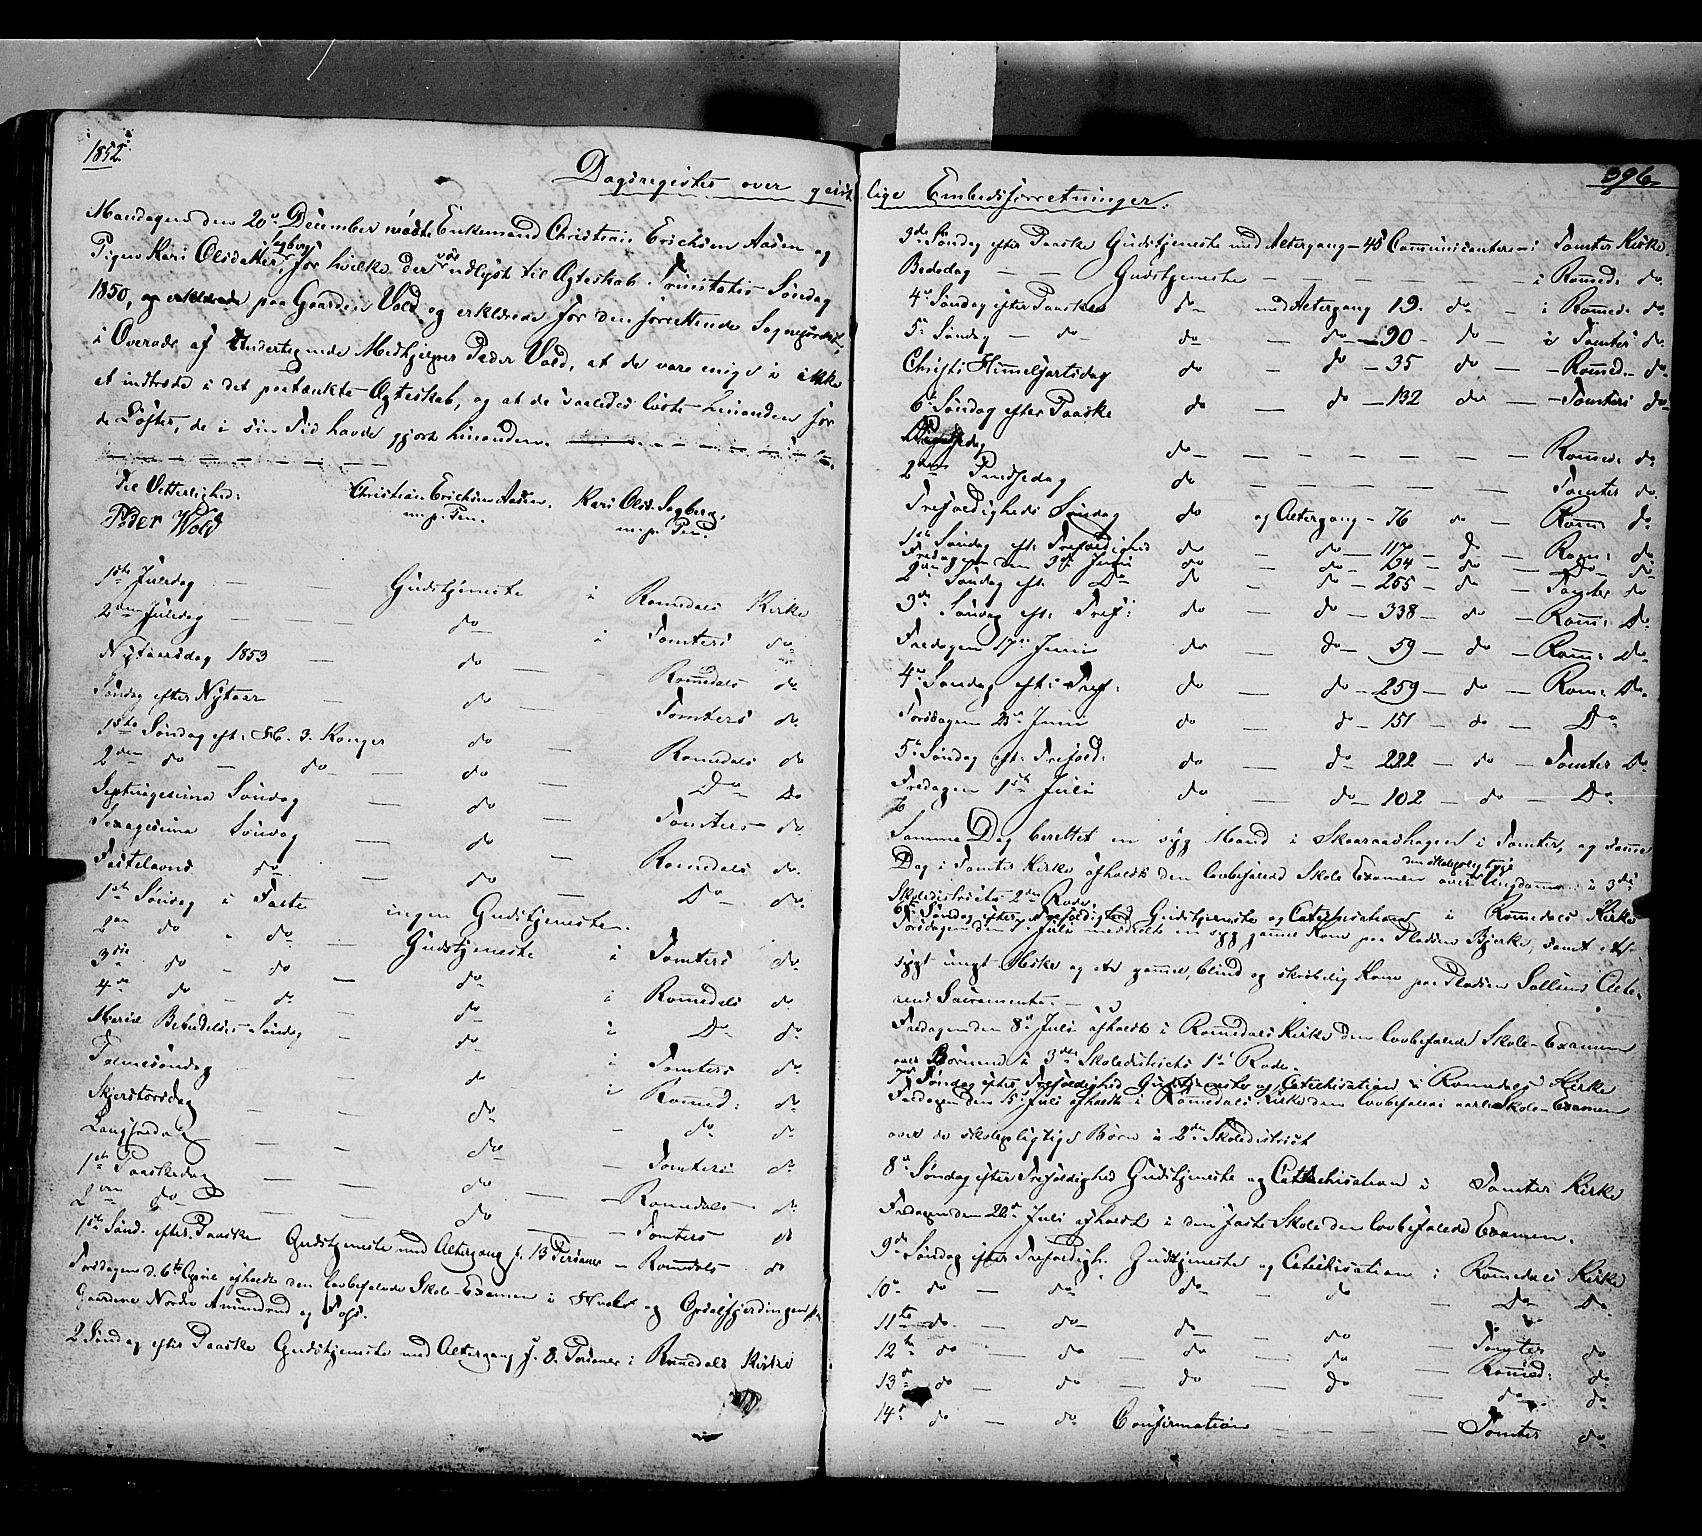 1852.
Dagsregister over geist
Mandagen den 20de December mødte Enkemand Christian Erichsen Aasen og
Pigen Kari Olsdatter Sagberg, for hvilke der var udlyst til Ægteskab Trinitatis Søndag
1850, og erklærede paa Gaarden Vold og erklærede for den forrettende Sognepræst,
i Overvær af Undertegnede Medhjelper Peder Vold, at de vare enige i ikke
at indtræde i det paatænkte Ægteskab, og at de saaledes løste hinanden for
de Løfter, de i sin Tid havde gjort hinanden.
Til Vitterlighed: Christian Erichsen Aasen. Kari Olsd. Sagberg,
Peder Wold m. p. Pen. m. p. Pen.
1ste Juledag — Gudstjeneste i Romedals Kirke
2den Juledag — do i Tomters do
Nytaarsdag 1853 — do — Romedals do
Søndag efter Nytaar — do — Tomters do
1ste Søndag eft. H. 3. Konger do — Romedals do
2den do — do — do — Do Do
Septuagesima Søndag — do — Tomters do
Sexagesima Søndag — do — Romedals do
Fastelavns do — do — Do do
1ste Søndag i Faste ingen Gudstjeneste.
2den do " do — Gudstjeneste i Tomters do
3die do — do — do i Romedals do
4de do — do do i Do do
Mariæ Bebudelses-Søndag — do i Tomters do
Palmesøndag — do i Romed: do
Skjertorsdag — do — do do
Langfredag — do — Tomters do
1ste Paaskedag — do — Romedals do
2den do — do — Tomters do
1ste Sønd. efter Paaske Gudstjeneste med Altergang f. 13 Personer — Romedals do
Torsdagen d. 6te April afholdt den lovbefalede Skole-Examen i Hvæls og Opsalfjerdingen paa
Gaardene Nordre Amundrud og
2 Søndag efter Paaske Gudstjeneste med Altergang f. 8 Personer i Romedals Kirke
396.
lige Embedsforretninger.
3die Søndag efter Paaske Gudstjeneste med Altergang — 45 Communicanter — i Tomter Kirke.
Bededag — Gudstjeneste — i Romed: do
4de Søndag efter Paaske do — med Altergang 19. do — i Romed: do
5te Søndag — do — do — do — 90 — do — i Tomter do
Christi Himmelfartsdag do — do — 35 do — Romed. do
6te Søndag efter Paaske do — do — 132 do — Tomters do
Pindsedag do — Romed: do
2den Pindsedag do — Tomter do
Trefoldigheds Søndag do og Altergang — 76 do — Rom: do
1ste Søndag eft. Trefoldighed do — do — 117 — do — Rom: do
Fredagen den 3die Juni do — do — 134 — do — Do do
2den Søndag eft. Do do — do — 265 — do — Tomter do
3die Søndag eft. Tref: do — do — 338 — do — Rom: Do
Fredagen 17de Juni do — do — 59 — do — Rom: Do
4de Søndag eft: Tref: do — do — 259 — do — Rom: Do
Torsdagen 23de Juni do — do — 151 — do — Do
5te Søndag eft: Trefold: do — do — 222 — do — Tomter Do
Fredagen 1ste Juli do — do — 102 — do — Do
Samme Dag berettet en syg Mand i Skaaraashagen i Tomter, og samme
Dag i Tomter Kirke afholdt den lovbefalede Skole Examen over den skolepligtige Ungdom i 3die
Skoledistricts 2den Rode.
6te Søndag efter Trefoldighed Gudstjeneste og Catechisation i Romedals Kirke
Torsdagen den 7. Juli meddelte en syg gammel Kone paa Pladsen Bjerke, samt et
sygt ungt Mske og en gammel, blind og skrøbelig Kone paa Pladsen Sollien Alte-
rens Sacramente.
Fredagen den 8de Juli afholdt i Romedals Kirke den lovbefalede Skole-Examen
over Børnene i 3die Skoledistricts 1ste Rode.
7de Søndag efter Trefoldighed Gudstjeneste og Catechisation i Romedals Kirke
Fredagen den 15de Juli afholdt i Romedals Kirke den lovbefalede aarlige Skole-Examen
over de skolepligtige Børn i 2det Skoledistrict
8de Søndag efter Trefoldighed Gudstjeneste og Catechisation i Tomter Kirke
Fredagen den 22de Juli afholdt i den faste Skole den lovbefalede Examen.
9de Søndag efter Trefoldigh. Gudstjeneste og Catechisation i Romedals Kirke
10de do — do — do — do — Do Do
11te do — do — do — do — Tomter do
12te do — do — do — do — Romed: do
13de do — do — do — do — do do
14de do — do Confirmation — Tomter do